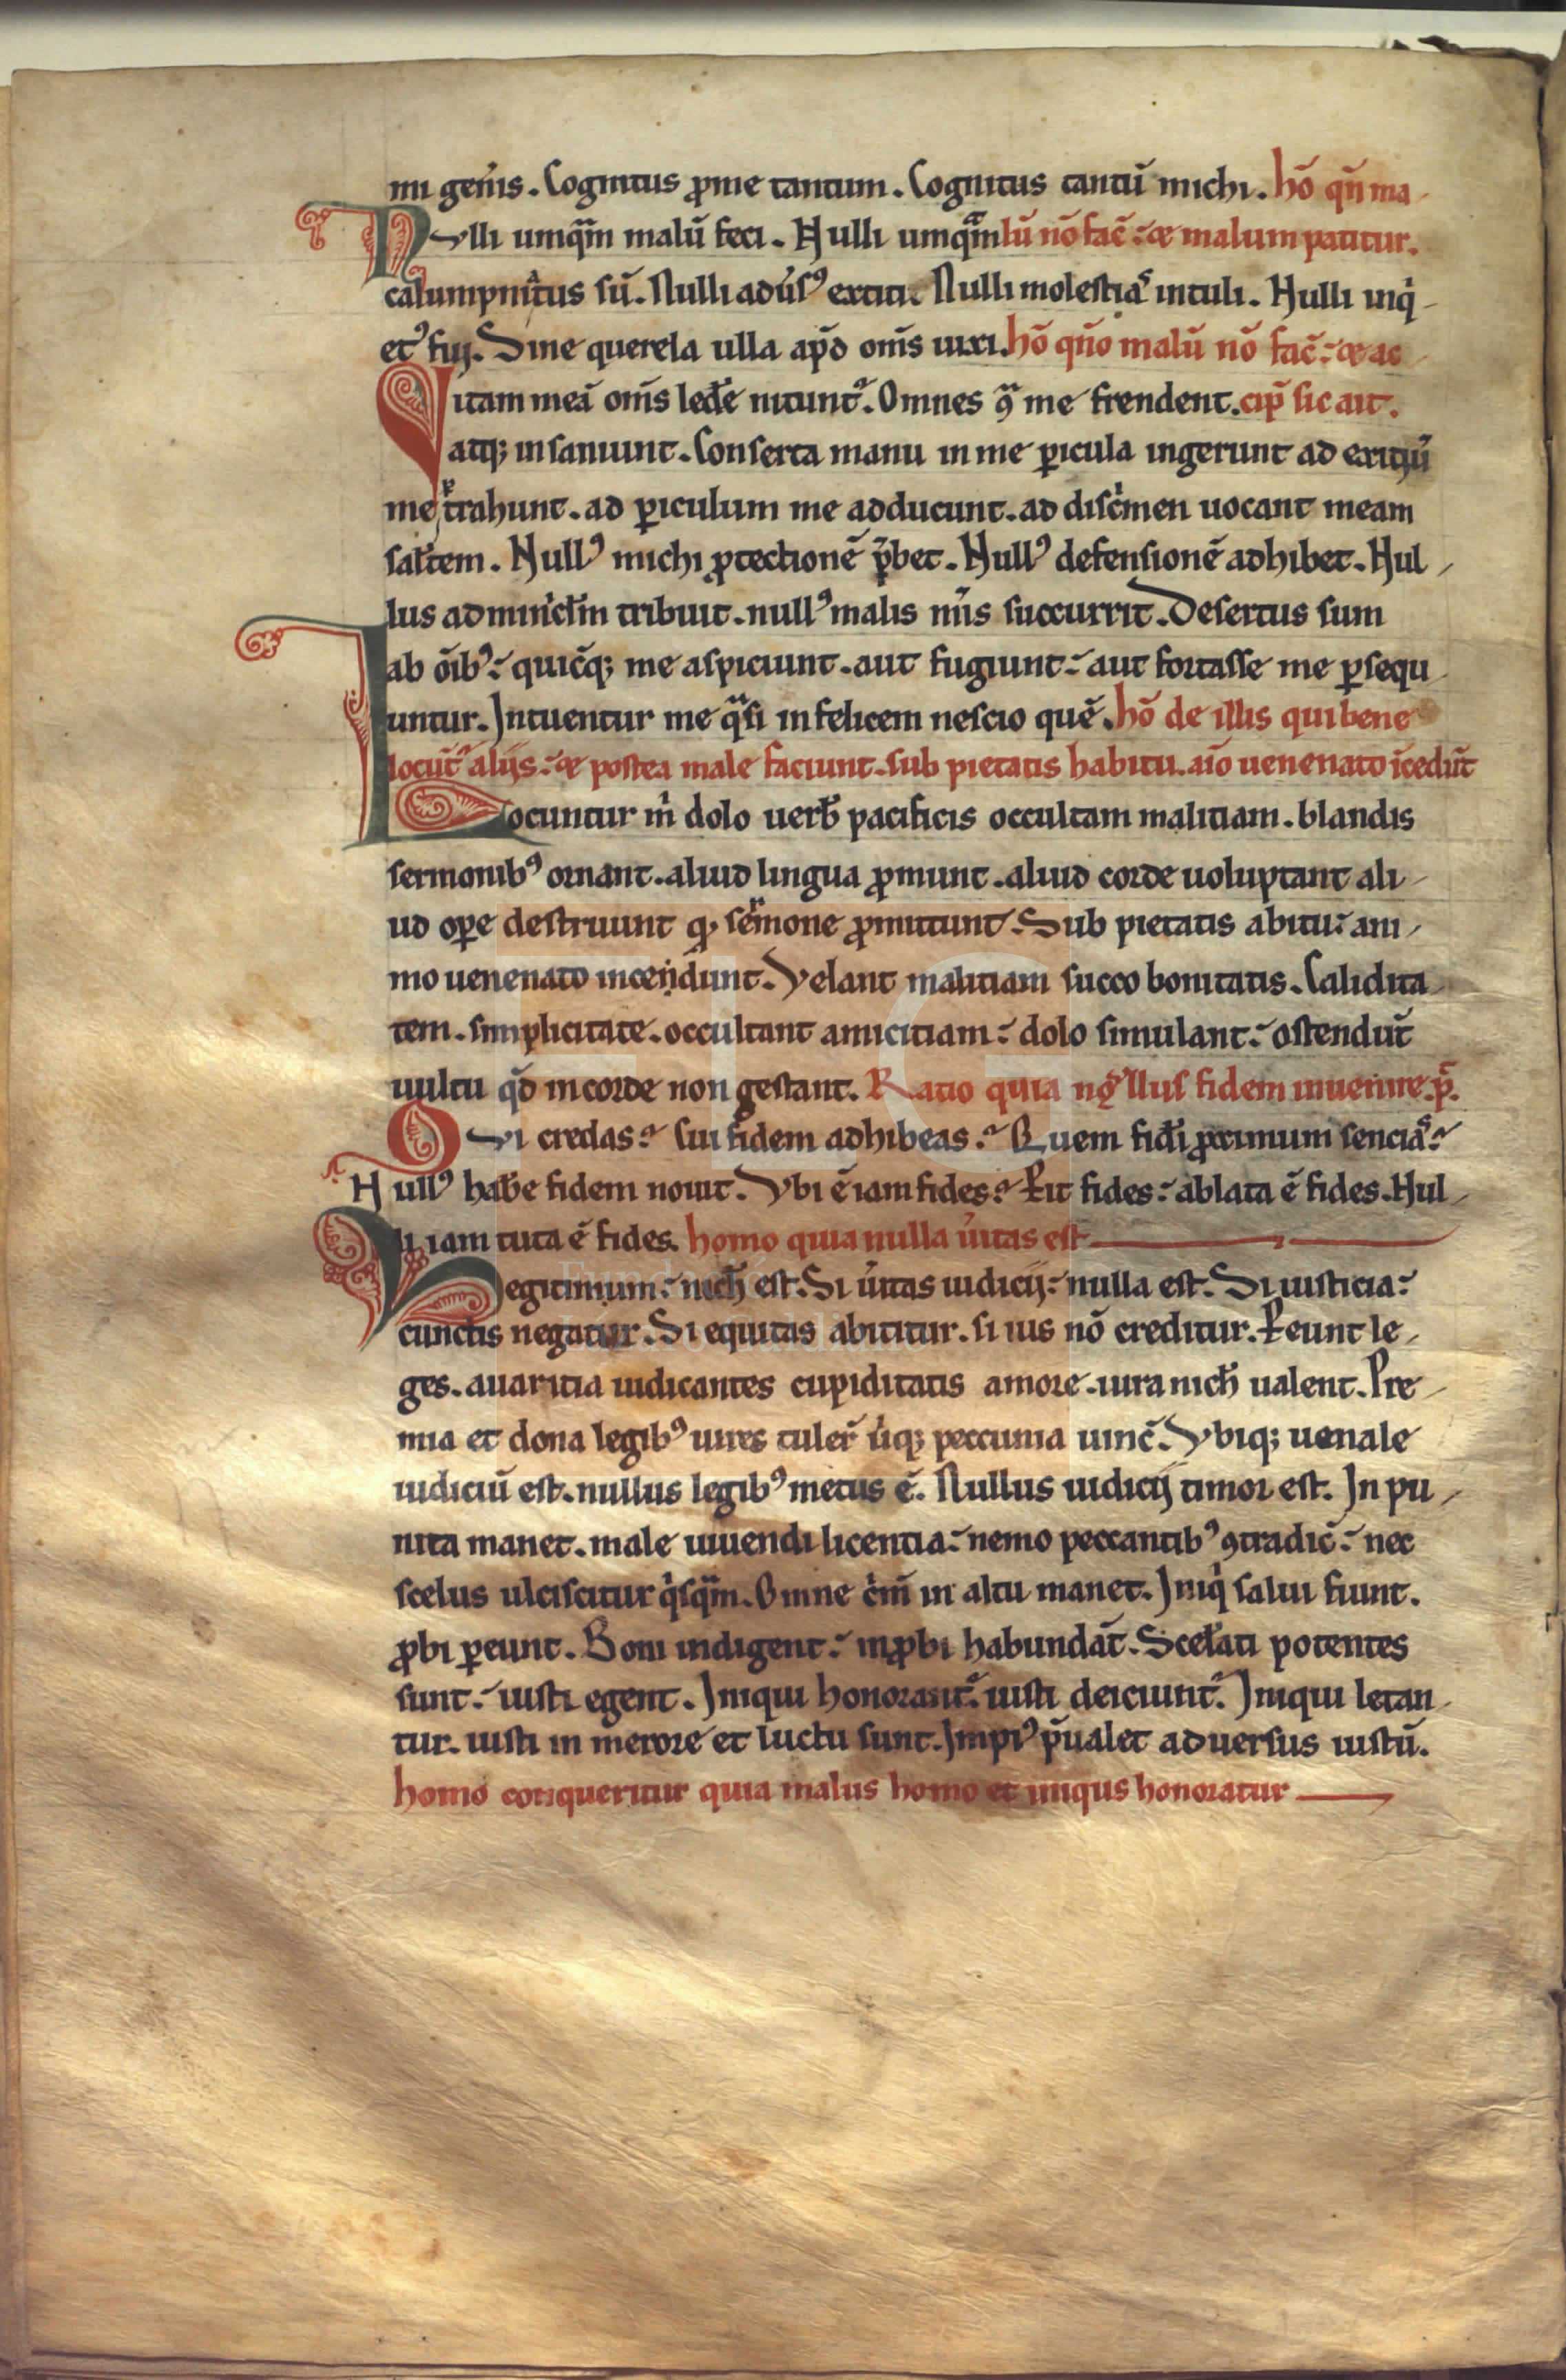 mi geñis. Cognitus ꝓme tantum. Cognitus tantũ michi. hõ qñ ma
Nulli umqᷓm malũ feci. Nulli umqᷓm lũ nõ fac̃. & malum patitur.
calumpniᷓtus sũ. Nulli adũsꝰ extiti. Nulli molestiã intuli. Nulli inqͥ
etꝰ fuj. Sine querela ulla apð om̃s uixi. hõ qño malũ nõ fac̃. & ac
Vitam meã om̃s lede᷑ nitunt᷑. Omnes ꝯᷓ me frendent. cip̃ sic ait.
atq; insaniunt. Conserta manu in me ꝑicula ingerunt ad exitiũ
me trahunt. ad ꝑiculum me adducunt. ad discͥmen uocant meam
sal̃tem. Nullꝰ michi ꝓtectionẽ p̃bet. Nullꝰ defensionẽ adhibet. Nul
lus adminicl̃m tribuit. nullꝰ malis m̃is succurrit. Desertus sum
ab õibꝰ. quic̃q; me aspiciunt. aut fugiunt. aut fortasse me ꝑsequ
untur. Intuentur me qᷓsi infelicem nescio quẽ. hõ de illis qui bene
locũt᷑ alijs. & postea male faciunt. sub pietatis habitu. aĩo uenenato ĩcedũt
Locuntur mͥ dolo uerb̃ pacificis occultam malitiam. blandis
sermonibꝰ ornant. aliud lingua ꝓmunt. aliud corde uoluptant ali
ud oꝑe destruunt qͦ sermone ꝓmittunt. Sub pietatis abitu. ani
mo uenenato incendunt. Velant malitiam succo bonitatis. Calidita
tem. simplicitate. occultant amicitiam. dolo simulant. ostendũt
uultu qð in corde non gestant. Ratio quia nullus fidem inuenire. p̃.
Cvi credas. sui fidem adhibeas. Quem fidͥ ꝓximum senciãs.
Nullꝰ habe᷑ fidem nouit. Vbi ẽ iam fides. Ꝑit fides. ablata ẽ fides. Nul
li iam tuta ẽ fides. homo quia nulla ũitas est
Legitimum. nich̃ est. Si ũitas iudicij. nulla est. Si iusticia.
cunctis negatur. Si equitas abititur. si ius nõ creditur. Ꝑeunt le
ges. auaritia iudicantes cupiditatis amore. iura nich̃ ualent. Pre
mia et dona legibꝰ uires tuler̃ ũiq; peccunia uinc̃. Vbiq; uenale
iudiciũ est. nullus legibꝰ metus ẽ. Nullus iudicij timor est. In pu
nita manet. male uiuendi licentia. nemo peccantibꝰ ꝯtradic̃. nec
scelus ulciscitur qͥsqᷓm. Omne cͥm̃ in altu manet. Iniqͥ salui fiunt.
ꝓbi ꝑeunt. Boni indigent. inꝓbi habundãt. Scel̃ati potentes
sunt. iusti egent. Iniqui honorant᷑. iusti deiciunt᷑. Iniqui letan
tur. iusti in merore et luctu sunt. Impiꝰ p̃ualet aduersus iustũ.
homo conqueritur quia malus homo et iniqus honoratur